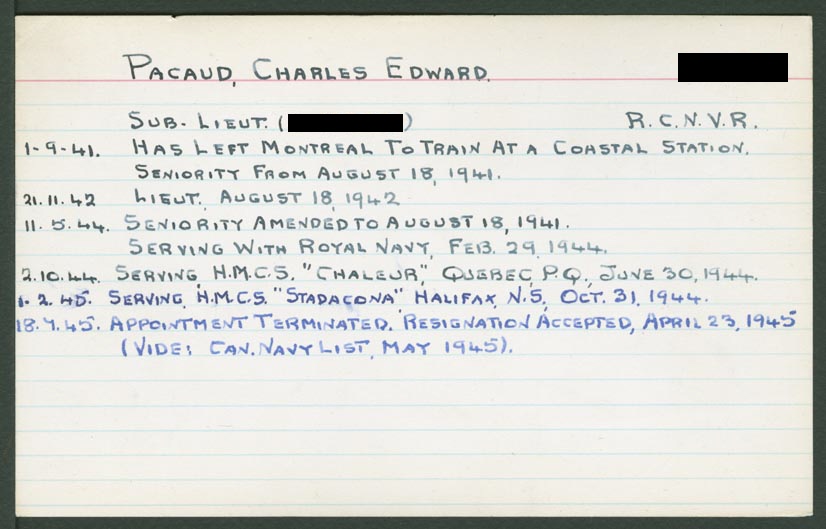 PACAUD, CHARLES EDWARD.
SUB-LIEUT. ( ) R.C.N.V.R.
1-9-41. HAS LEFT MONTREAL TO TRAIN AT A COASTAL STATION.
SENIORITY FROM AUGUST 18, 1941.
21.11.42 LIEUT. AUGUST 18, 1942
11.5.44. SENIORITY AMENDED TO AUGUST 18, 1941.
SERVING WITH ROYAL NAVY, FEB. 29, 1944.
2.10.44. SERVING, H.M.C.S. "CHALEUR", QUEBEC, P.Q., JUNE 30, 1944.
1.2.45. SERVING, H.M.C.S. "STADACONA" HALIFAX, N.S, OCT. 31, 1944.
18.7.45. APPOINTMENT TERMINATED. RESIGNATION ACCEPTED, APRIL 23, 1945
(VIDE: CAN. NAVY LIST, MAY 1945).